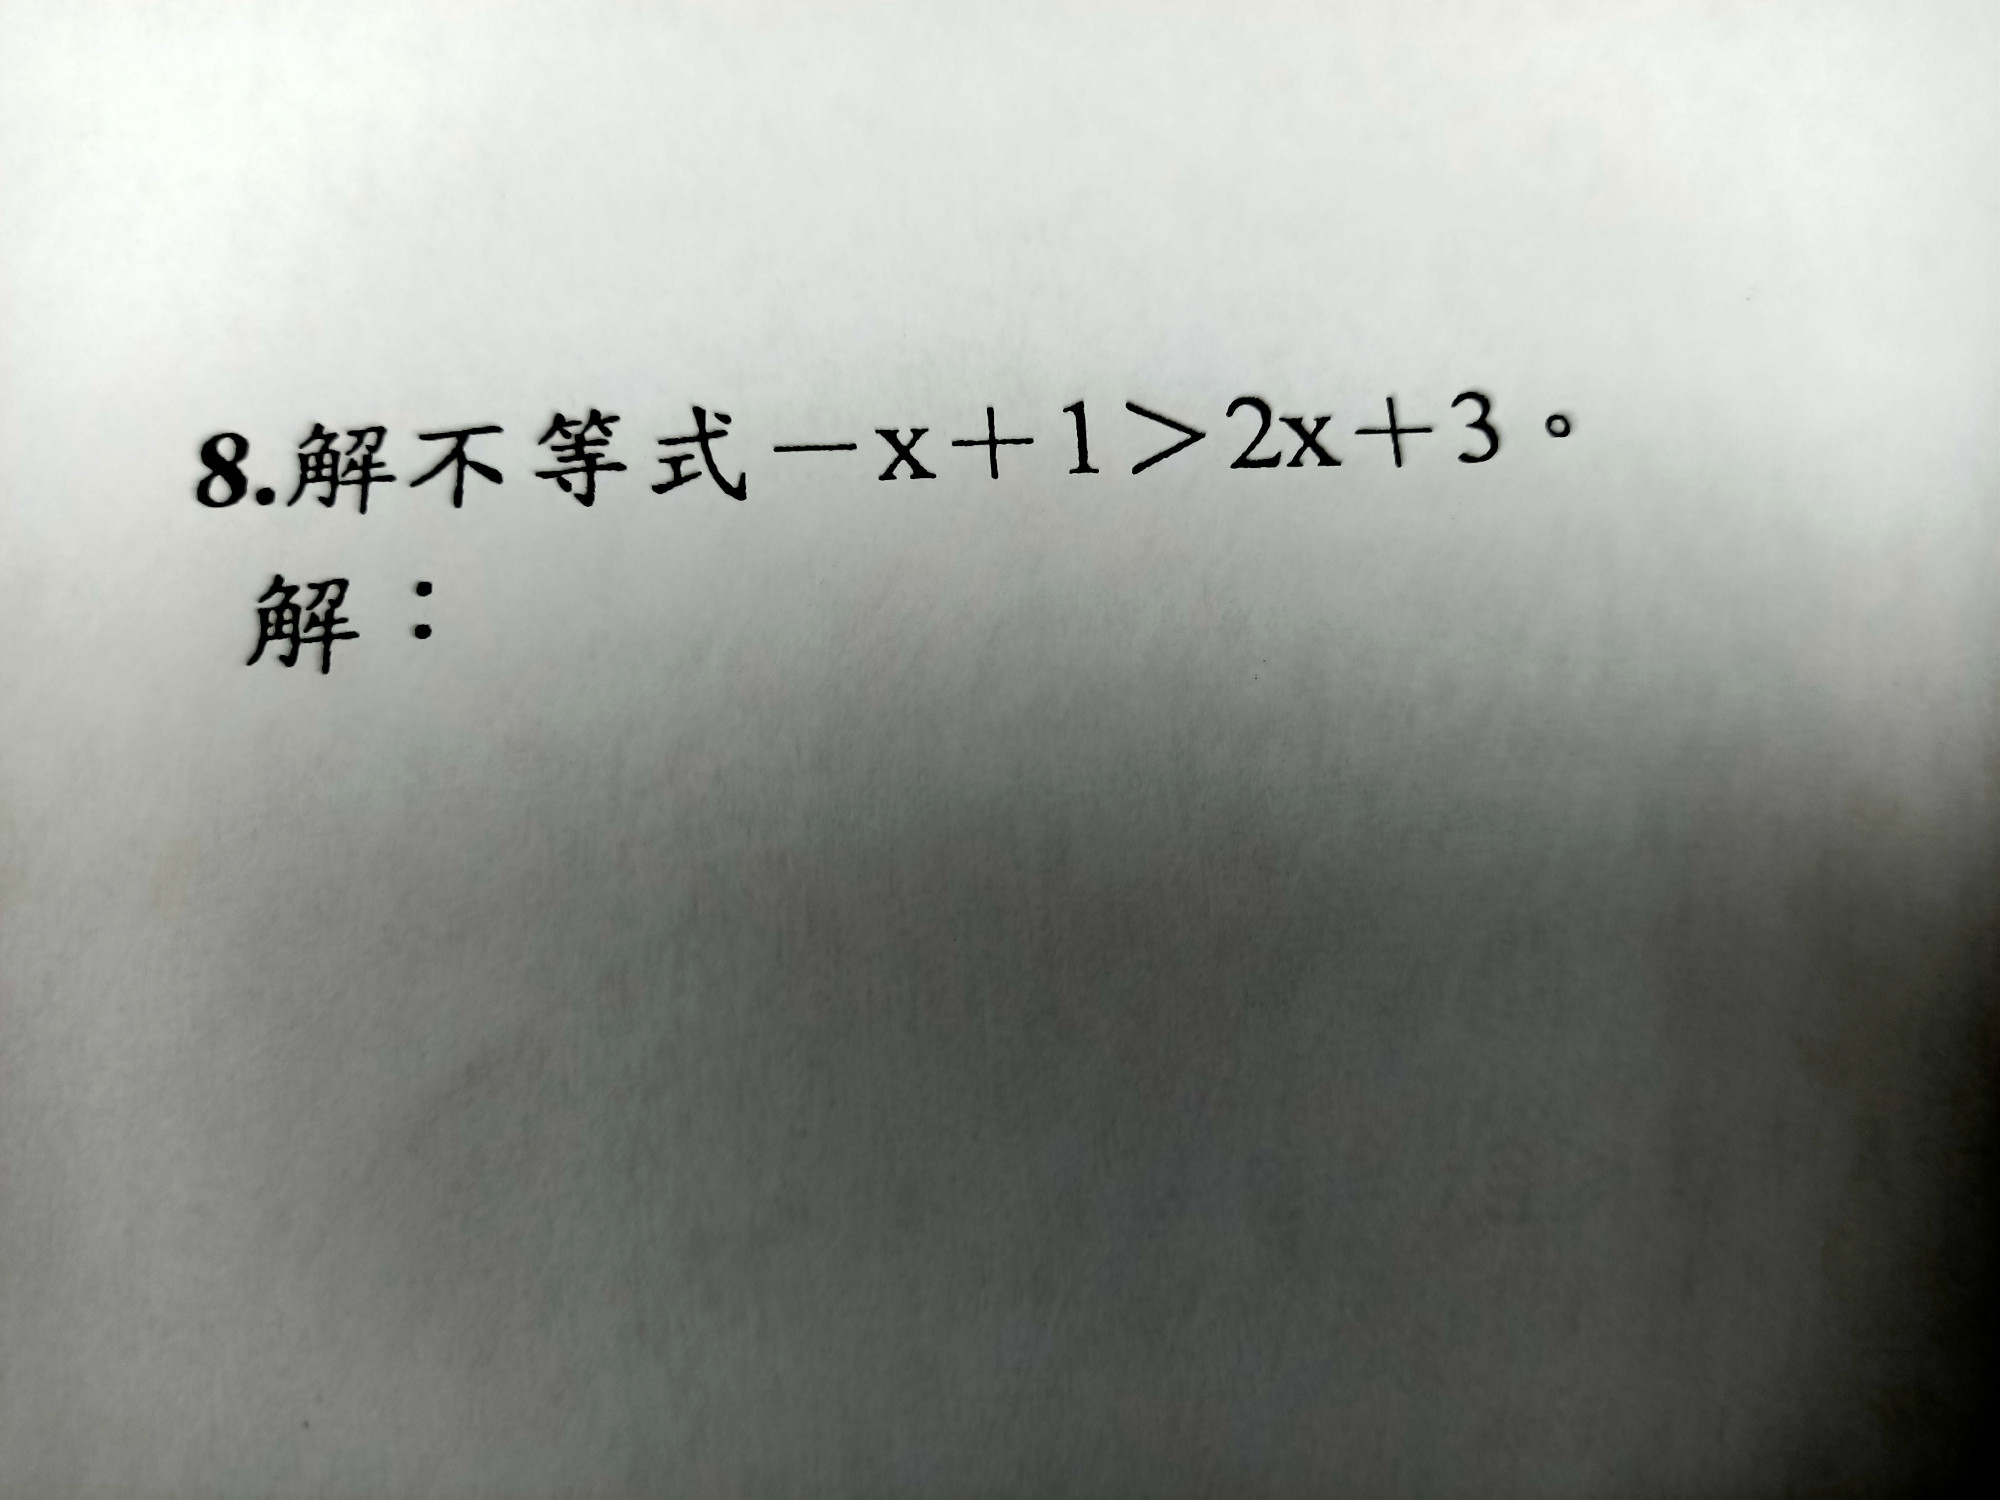 8.解不等式－x＋1＞2x＋3。
解：